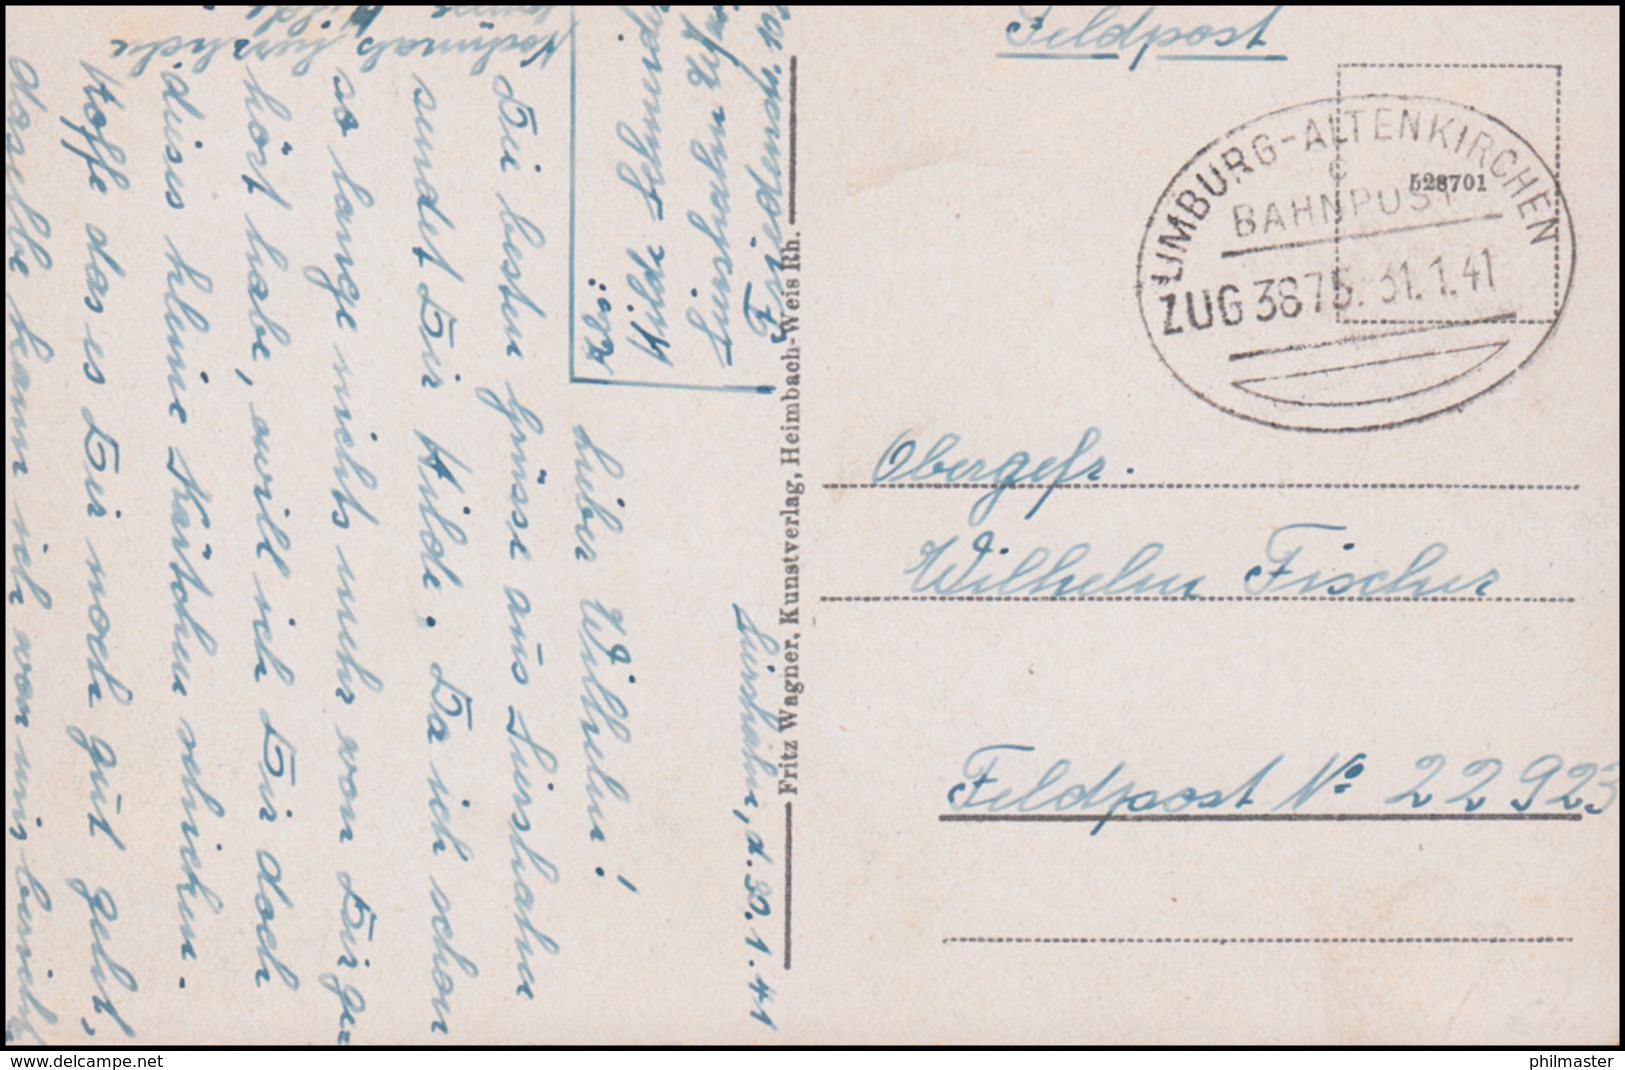 Feldpost
LIMBURG-ALTENKIRCHEN
c
BAHNPOST
ZUG 3875. 31.1.41
528701
Obergefr.
Wilhelm Fischer
Feldpost No 22923
Fritz Wagner, Kunstverlag, Heimbach-Weis Rh.
d. 30.1.41
Lieber Wilhelm!
Die besten Grüsse aus
sendet Dir Hilde. Da ich schon
so lange nichts mehr von Dir ge
hört habe, will ich Dir doch
dieses kleine Kärtchen schicken.
Hoffe das es Dir noch gut geht,
dasselbe kann ich von mir
Nochmals herzliche
Abs.:
Hilde
www.delcampe.net
philmaster